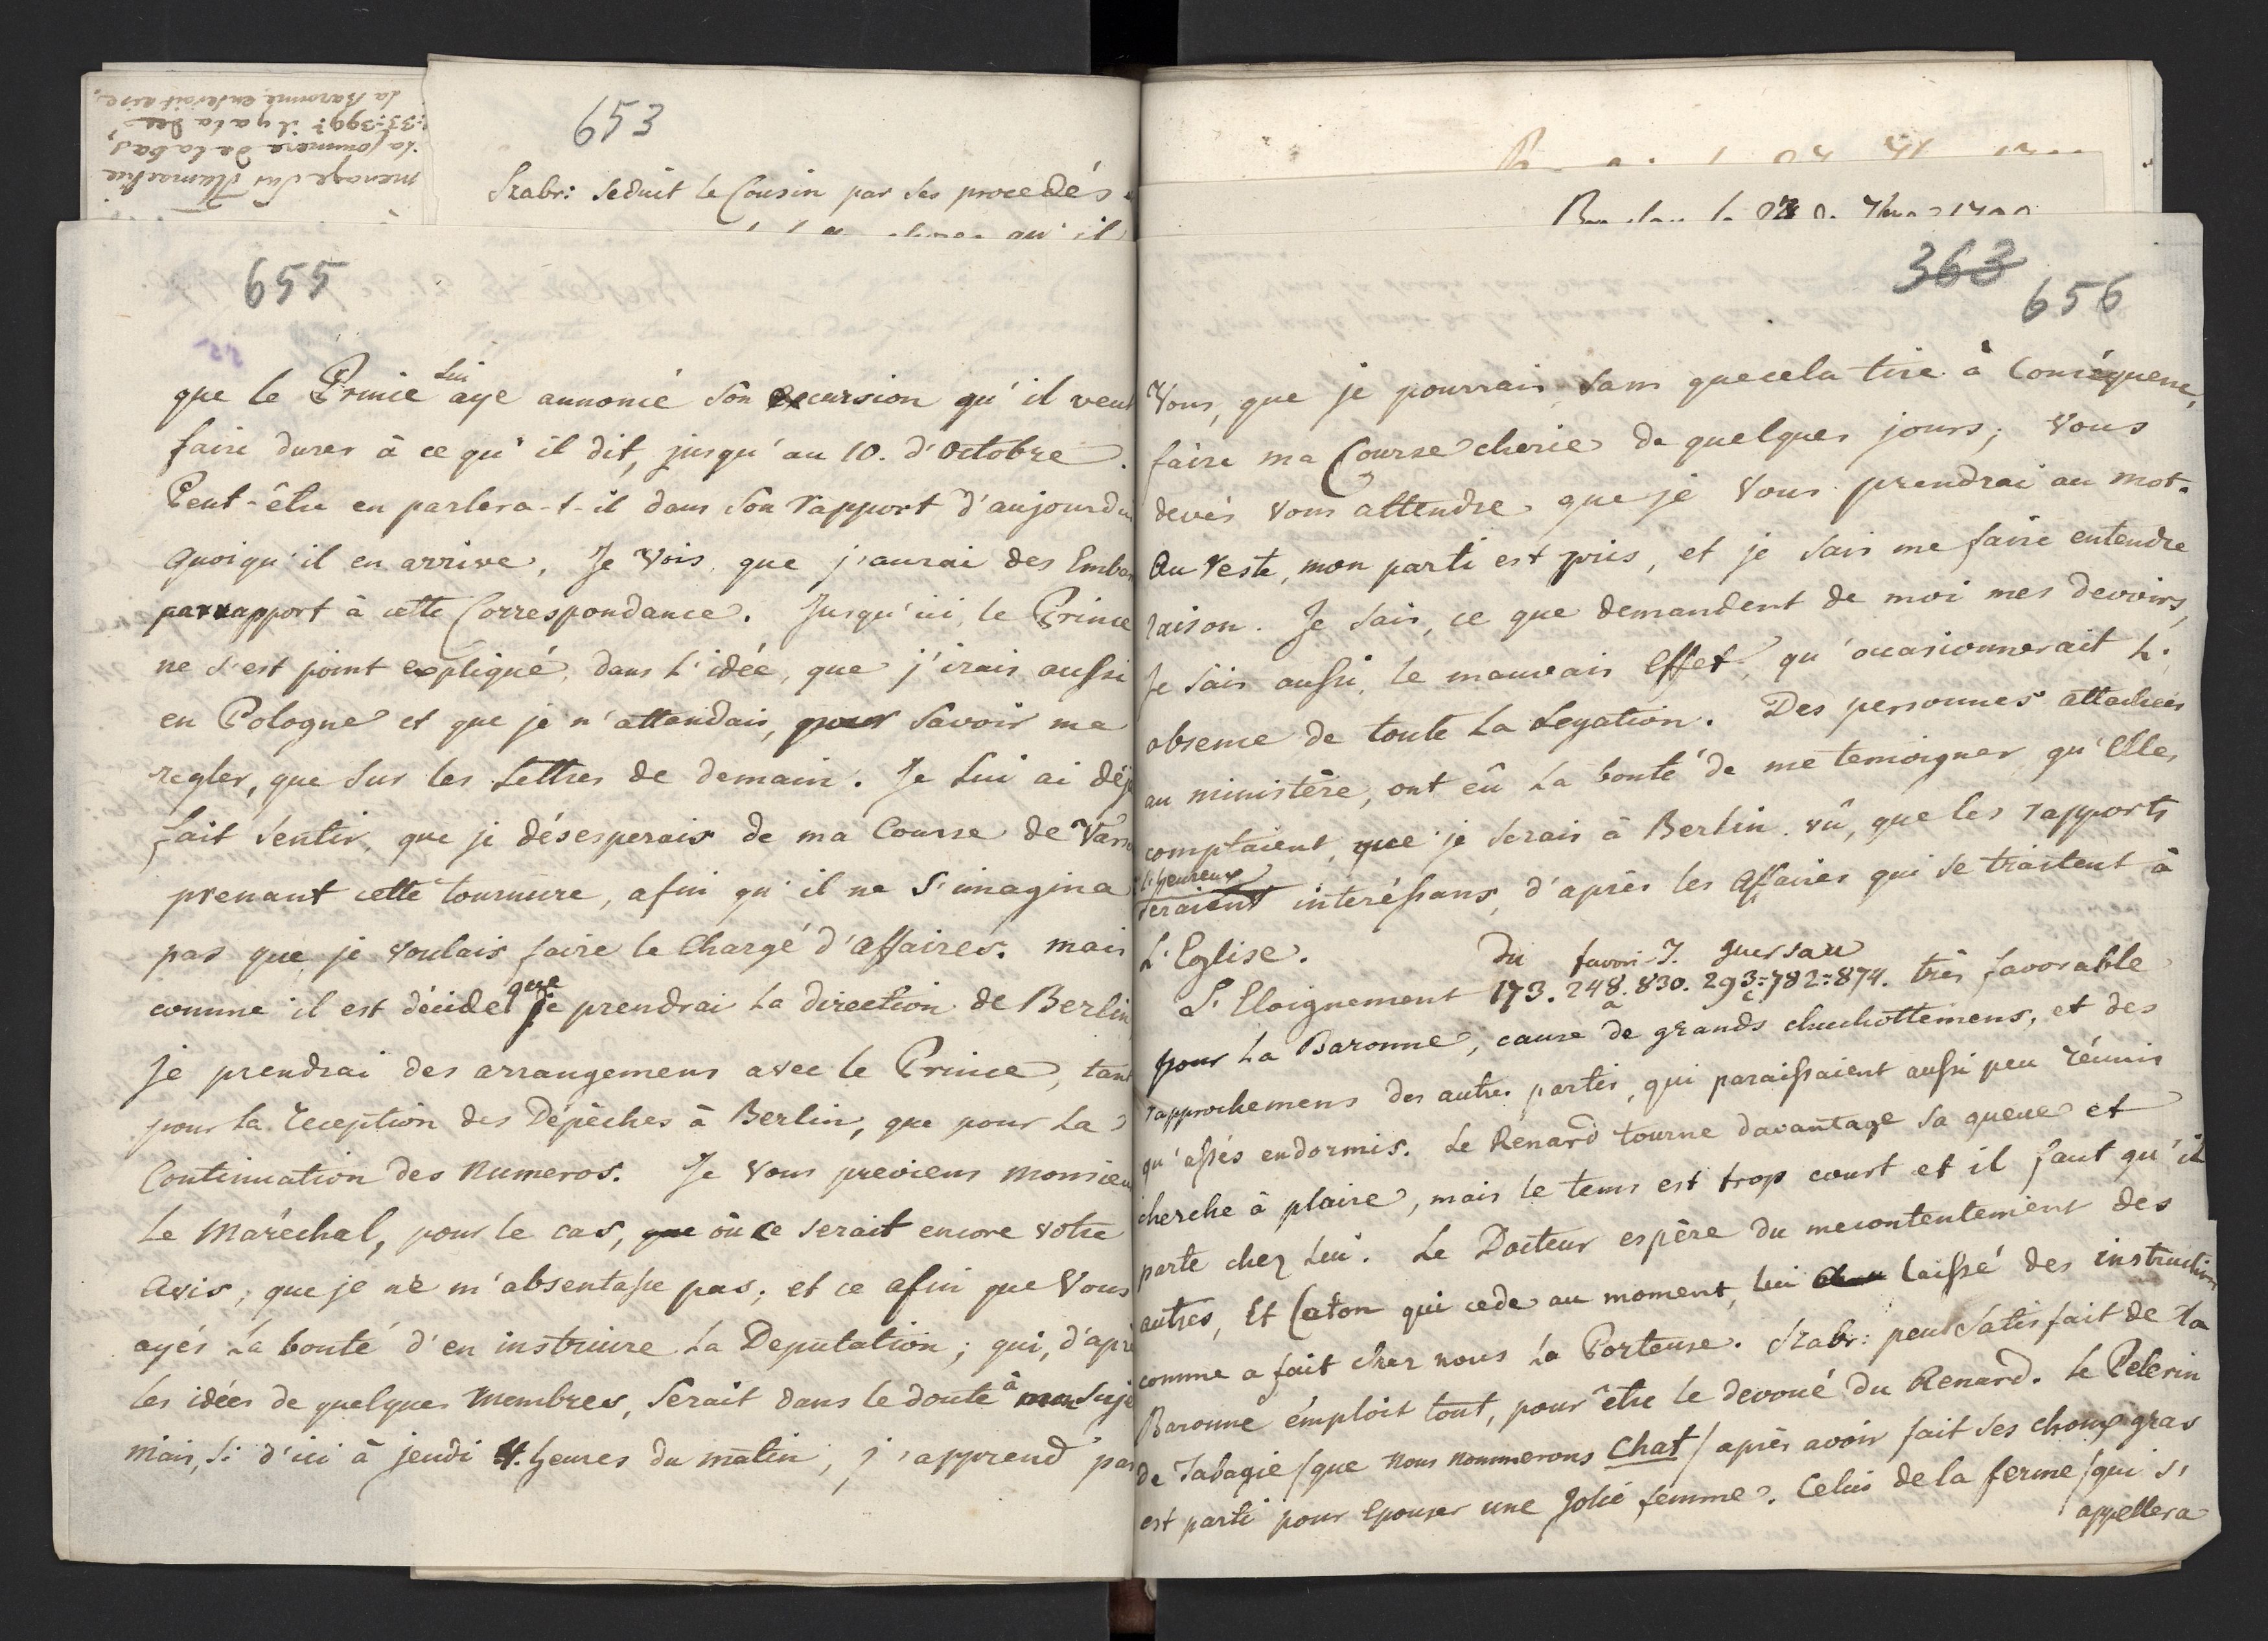 653
Szabr: seduit le Cousin par ses procedés
menage sur
la sommera de la bas,
:33:399? il y a la
La Baronne, en serait aise,
655
que le Prince lui aye annoncé son excursion qu'il veut
faire durer à ce qu'il dit, jusqu'au 10. d'Octobre.
Peut-être en parlera-t-il dans son rapport d'aujourdui
quoiqu'il en arrive. Je vois, que j'aurai des Embar
par rapport à cette Correspondance. Jusqu'ici, le Prince
ne s'est point expliqué, dans l'idée, que j'irais aussi
en Pologne et que je n'attendais, pour savoir me
regler, que sur les Lettres de demain. Je lui ai déja
fait sentir, que je désesperais de ma Course de Vars
prenant cette tournure, afin qu'il ne s'imagina
pas que je voulais faire le Chargé d'affaires. mais
comme il est décidé que je prendrai la direction de Berlin
je prendrai des arrangemens avec le Prince, tant
pour la reception des Dépêches à Berlin, que pour la
Continuation des Numeros. Je vous previens Monsieur
le Maréchal, pour le cas, que où ce serait encore votre
avis, que je ne m'absentasse pas; et ce afin que Vous
ayés la bonté d'en instruire la Deputation; qui, d'après
les idées de quelques Membres, serait dans le doute à mon sujet
mais, si d'ici à jeudi 4. heures du matin, j'apprend pas
363
656
Vous, que je pourrais, sans que cela tire à Conséquence,
faire ma Course cherie de quelques jours; vous
devés vous attendre que je vous prendrai au mot.
Au reste, mon parti est pris, et je sais me faire entendre
raison. Je sais, ce que demandent de moi mes devoirs,
Je sais aussi, le mauvais effet, qu'ocasionnerait l'
absence de toute la Legation. Des personnes attachées
au ministère, ont eû la bonté de me temoigner qu'Elles
comptaient, que je serais à Berlin. vû, que les rapports
seraient intéressans, d'après les affaires qui se traitent à
L'Eglise.
Du favori J.
L'Eloignement 173. 248. 830. 293:782:874. très favorable
pour la Baronne, cause de grands chuchottemens, et des
rapprochemens des autres partis, qui paraissaient aussi peu réunis
qu'assés endormis. Le Renard tourne davantage sa queue et
cherche à plaire, mais le tems est trop court et il faut qu'il
parte chez lui. Le Docteur espère du mecontentement des
autres, Et Caton qui cede au moment, lui laissé des instructions
comme a fait chez nous la Porteuse. Szabr: peu satisfait de la
Baronne emploit tout, pour être le devoué du Renard. Le Pelerin
de Tabagie / que nous nommerons Chat / après avoir fait ses choux gras
est parti pour epouser une Jolie femme. Celui de la ferme / qui s'
appellera